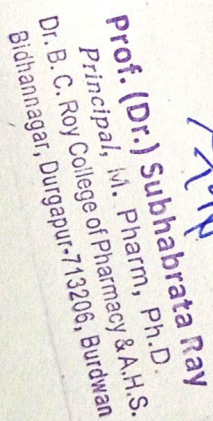 Prof. (Dr.) Subhabrata Ray
Principal, M. Pharm, Ph.D.
Dr. B. C. Roy College of Pharmacy & A.H.S.
Bidhannagar, Durgapur-713206, Burdwan